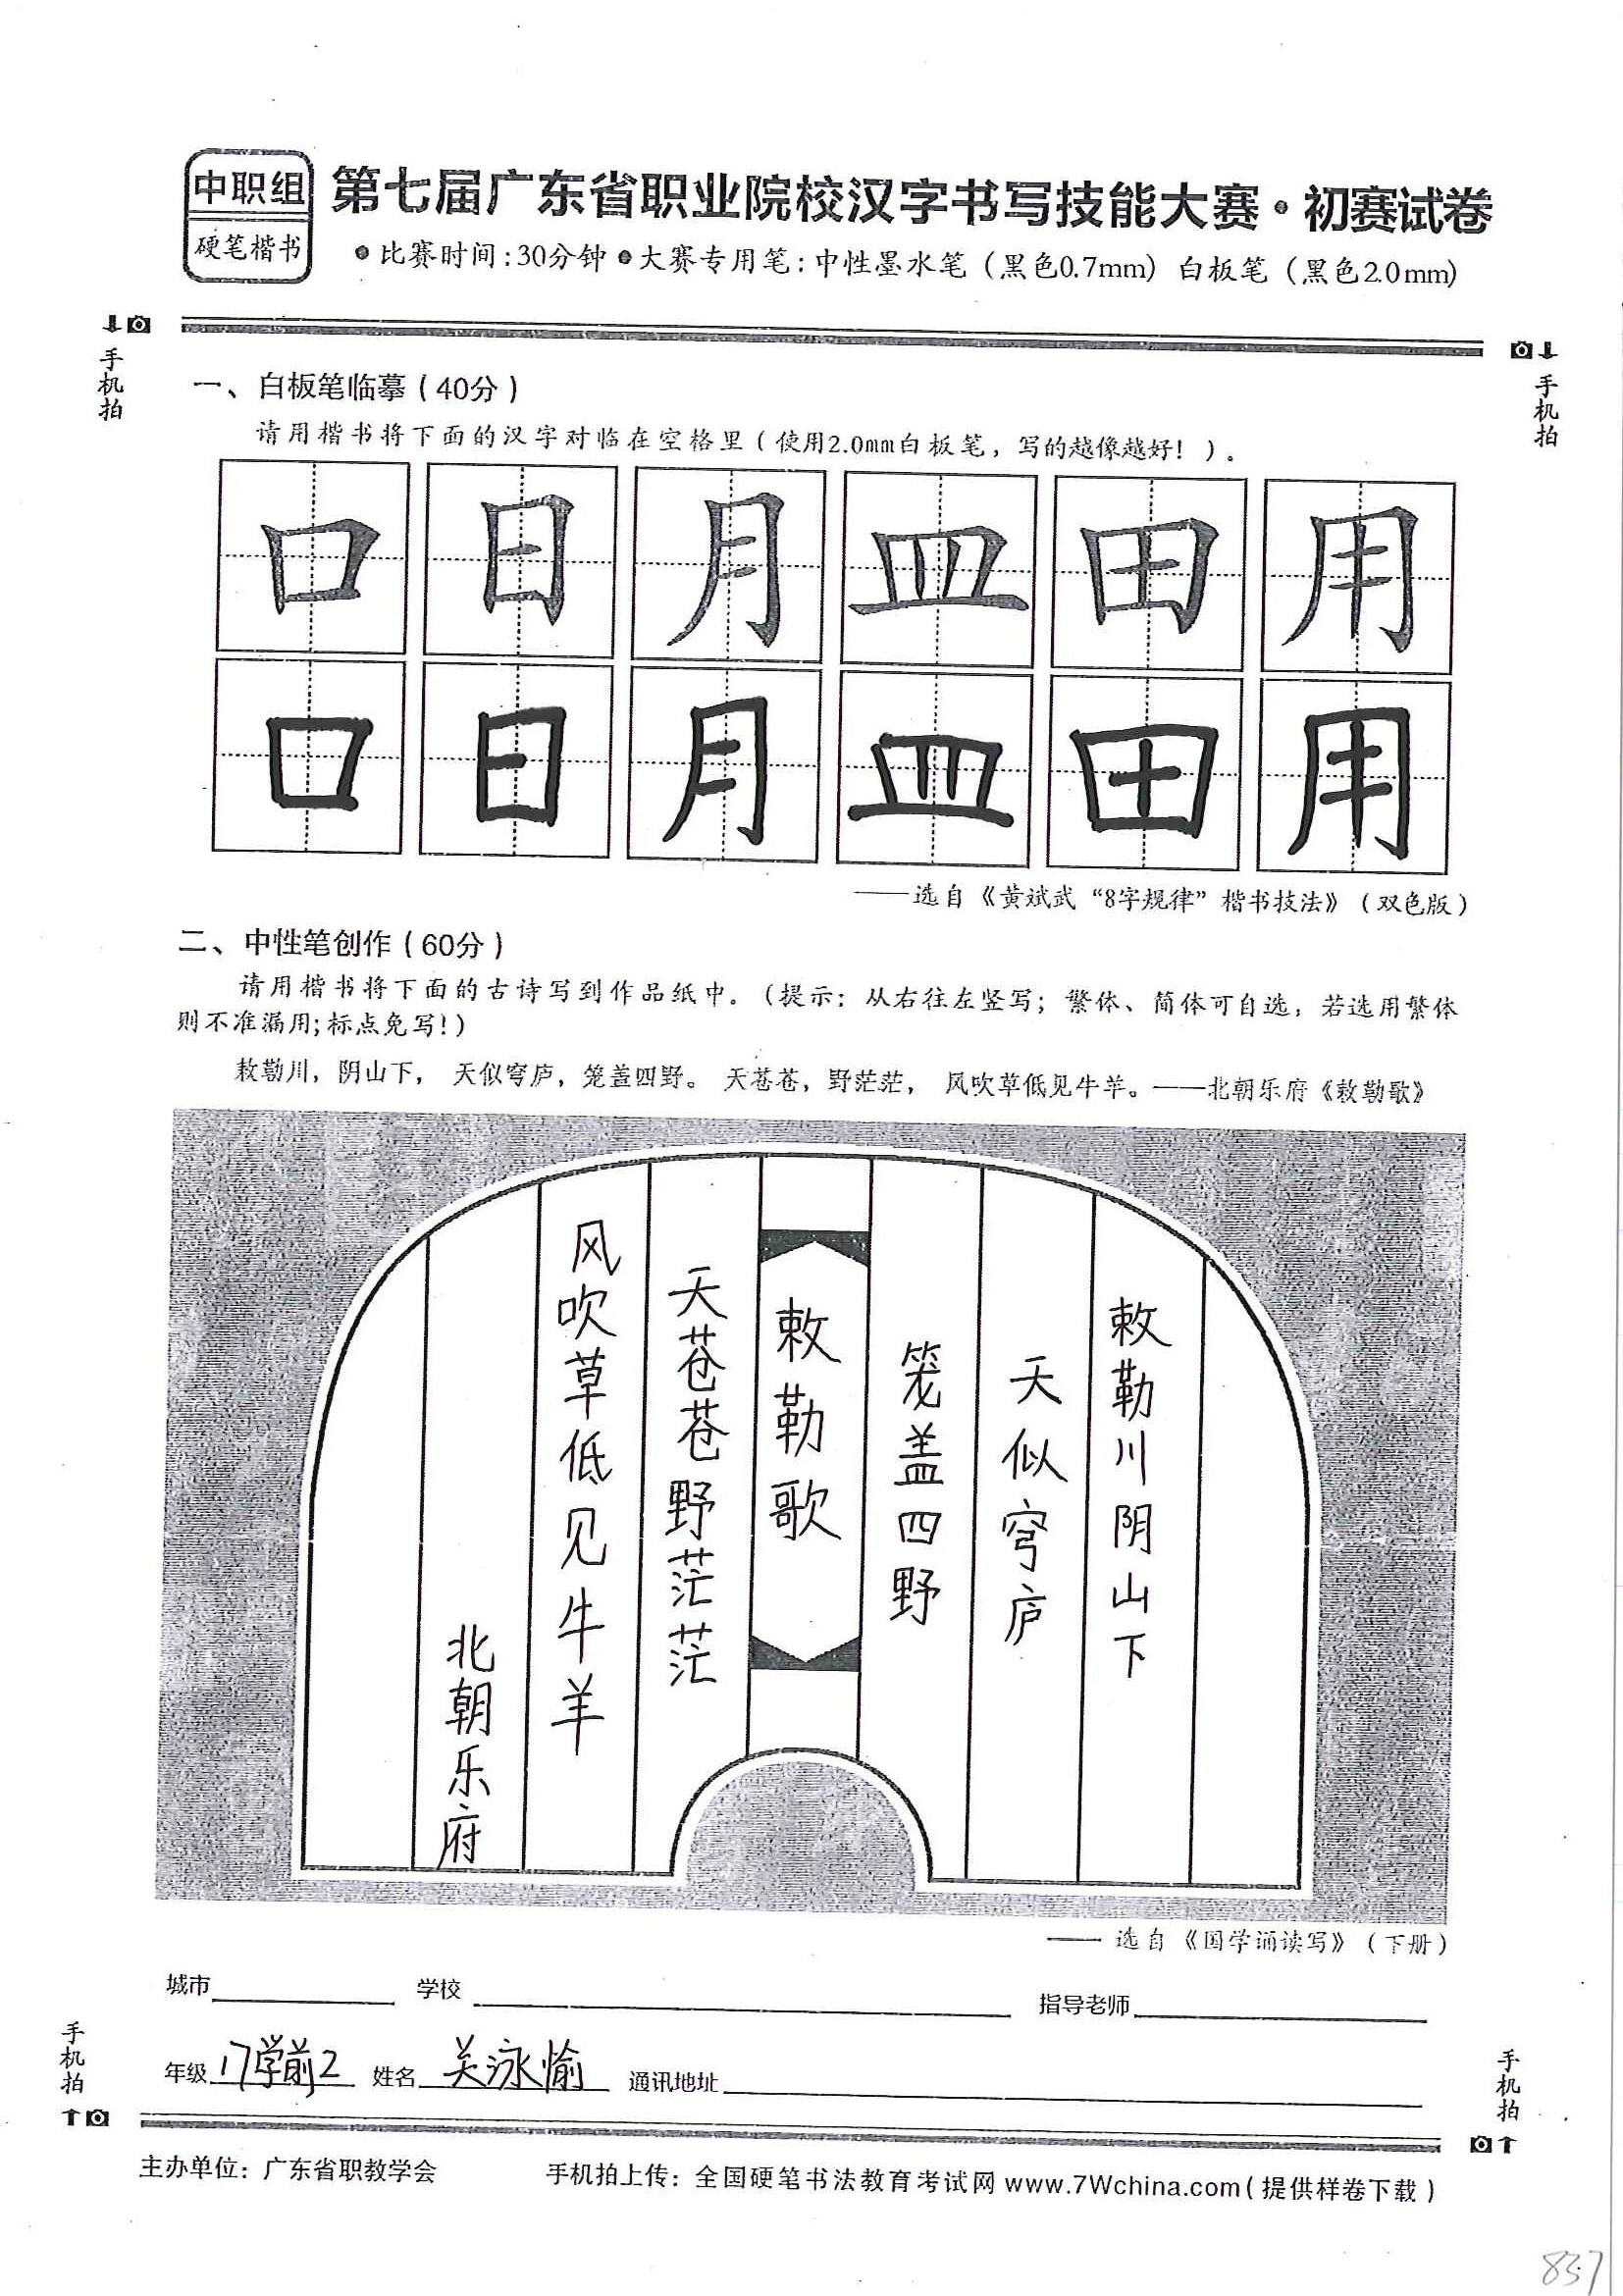 中职组
硬笔楷书
第七届广东省职业院校汉字书写技能大赛·初赛试卷
●比赛时间:30分钟●大赛专用笔:中性墨水笔（黑色0.7mm）白板笔（黑色2.0mm)
手机拍
手机拍
一、白板笔临摹（40分）
请用楷书将下面的汉字对临在空格里（使用2.0mm白板笔，写的越像越好！）。
口 日 月 皿 田 用
口 日 月 皿 田 用
——选自《黄斌武“8字规律”楷书技法》（双色版）
二、中性笔创作（60分）
请用楷书将下面的古诗写到作品纸中。（提示：从右往左竖写；繁体、简体可自选，若选用繁体
则不准漏用;标点免写!）
敕勒川，阴山下， 天似穹庐，笼盖四野。 天苍苍，野茫茫， 风吹草低见牛羊。——北朝乐府《敕勒歌》
敕勒川阴山下
天似穹庐
笼盖四野
敕勒歌
天苍苍野茫茫
风吹草低见牛羊
北朝乐府
—— 选自《国学诵读写》（下册）
城市 学校 指导老师
年级 17学前2 姓名 关泳愉 通讯地址
手机拍
手机拍
主办单位：广东省职教学会 手机拍上传：全国硬笔书法教育考试网 www.7Wchina.com（提供样卷下载）
837